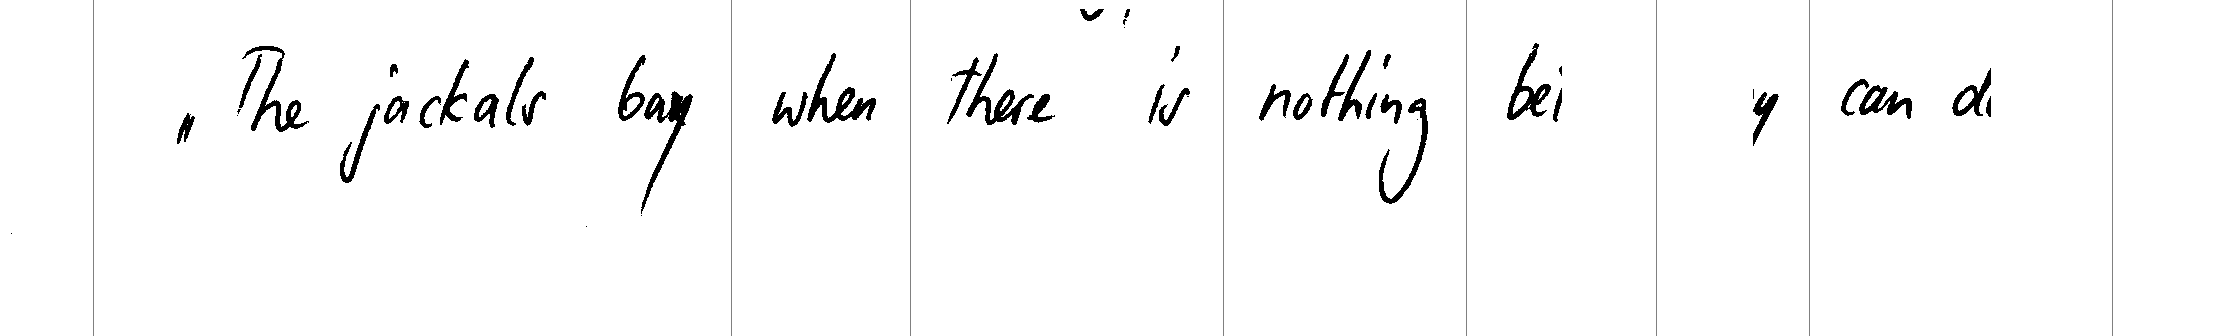 „The jackals bay when there is nothing can